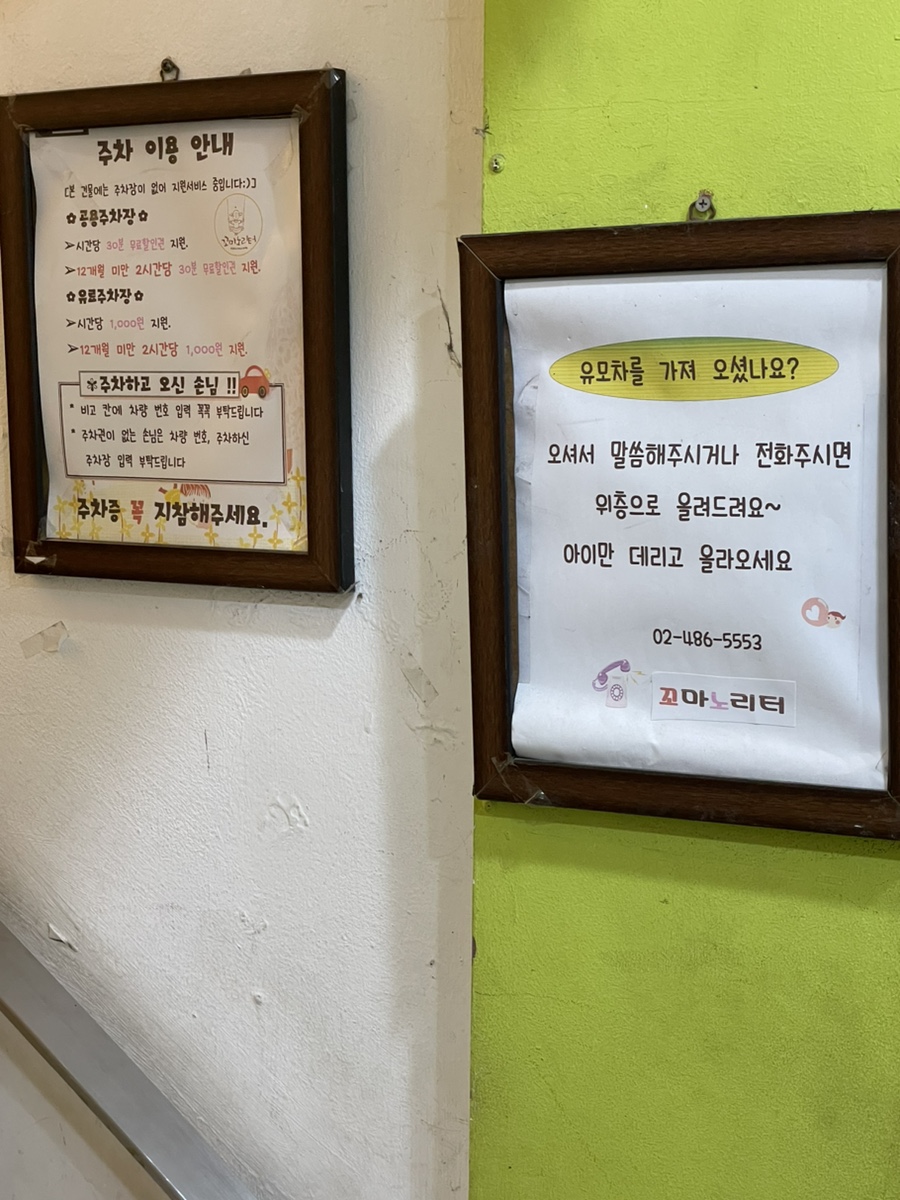 주차 이용 안내
[본 건물에는 주차장이 없어 지원서비스 중입니다:)]
✿공용주차장✿
꼬마노리터
➢시간당 30분 무료할인권 지원.
➢12개월 미만 2시간당 30분 무료할인권 지원.
✿유료주차장✿
➢시간당 1,000원 지원.
➢12개월 미만 2시간당 1,000원 지원.
✾주차하고 오신 손님 !!
* 비고 칸에 차량 번호 입력 꼭꼭 부탁드립니다
* 주차권이 없는 손님은 차량 번호, 주차하신
주차장 입력 부탁드립니다
주차증 꼭 지참해주세요.
유모차를 가져 오셨나요?
오셔서 말씀해주시거나 전화주시면
위층으로 올려드려요~
아이만 데리고 올라오세요
02-486-5553
꼬마노리터